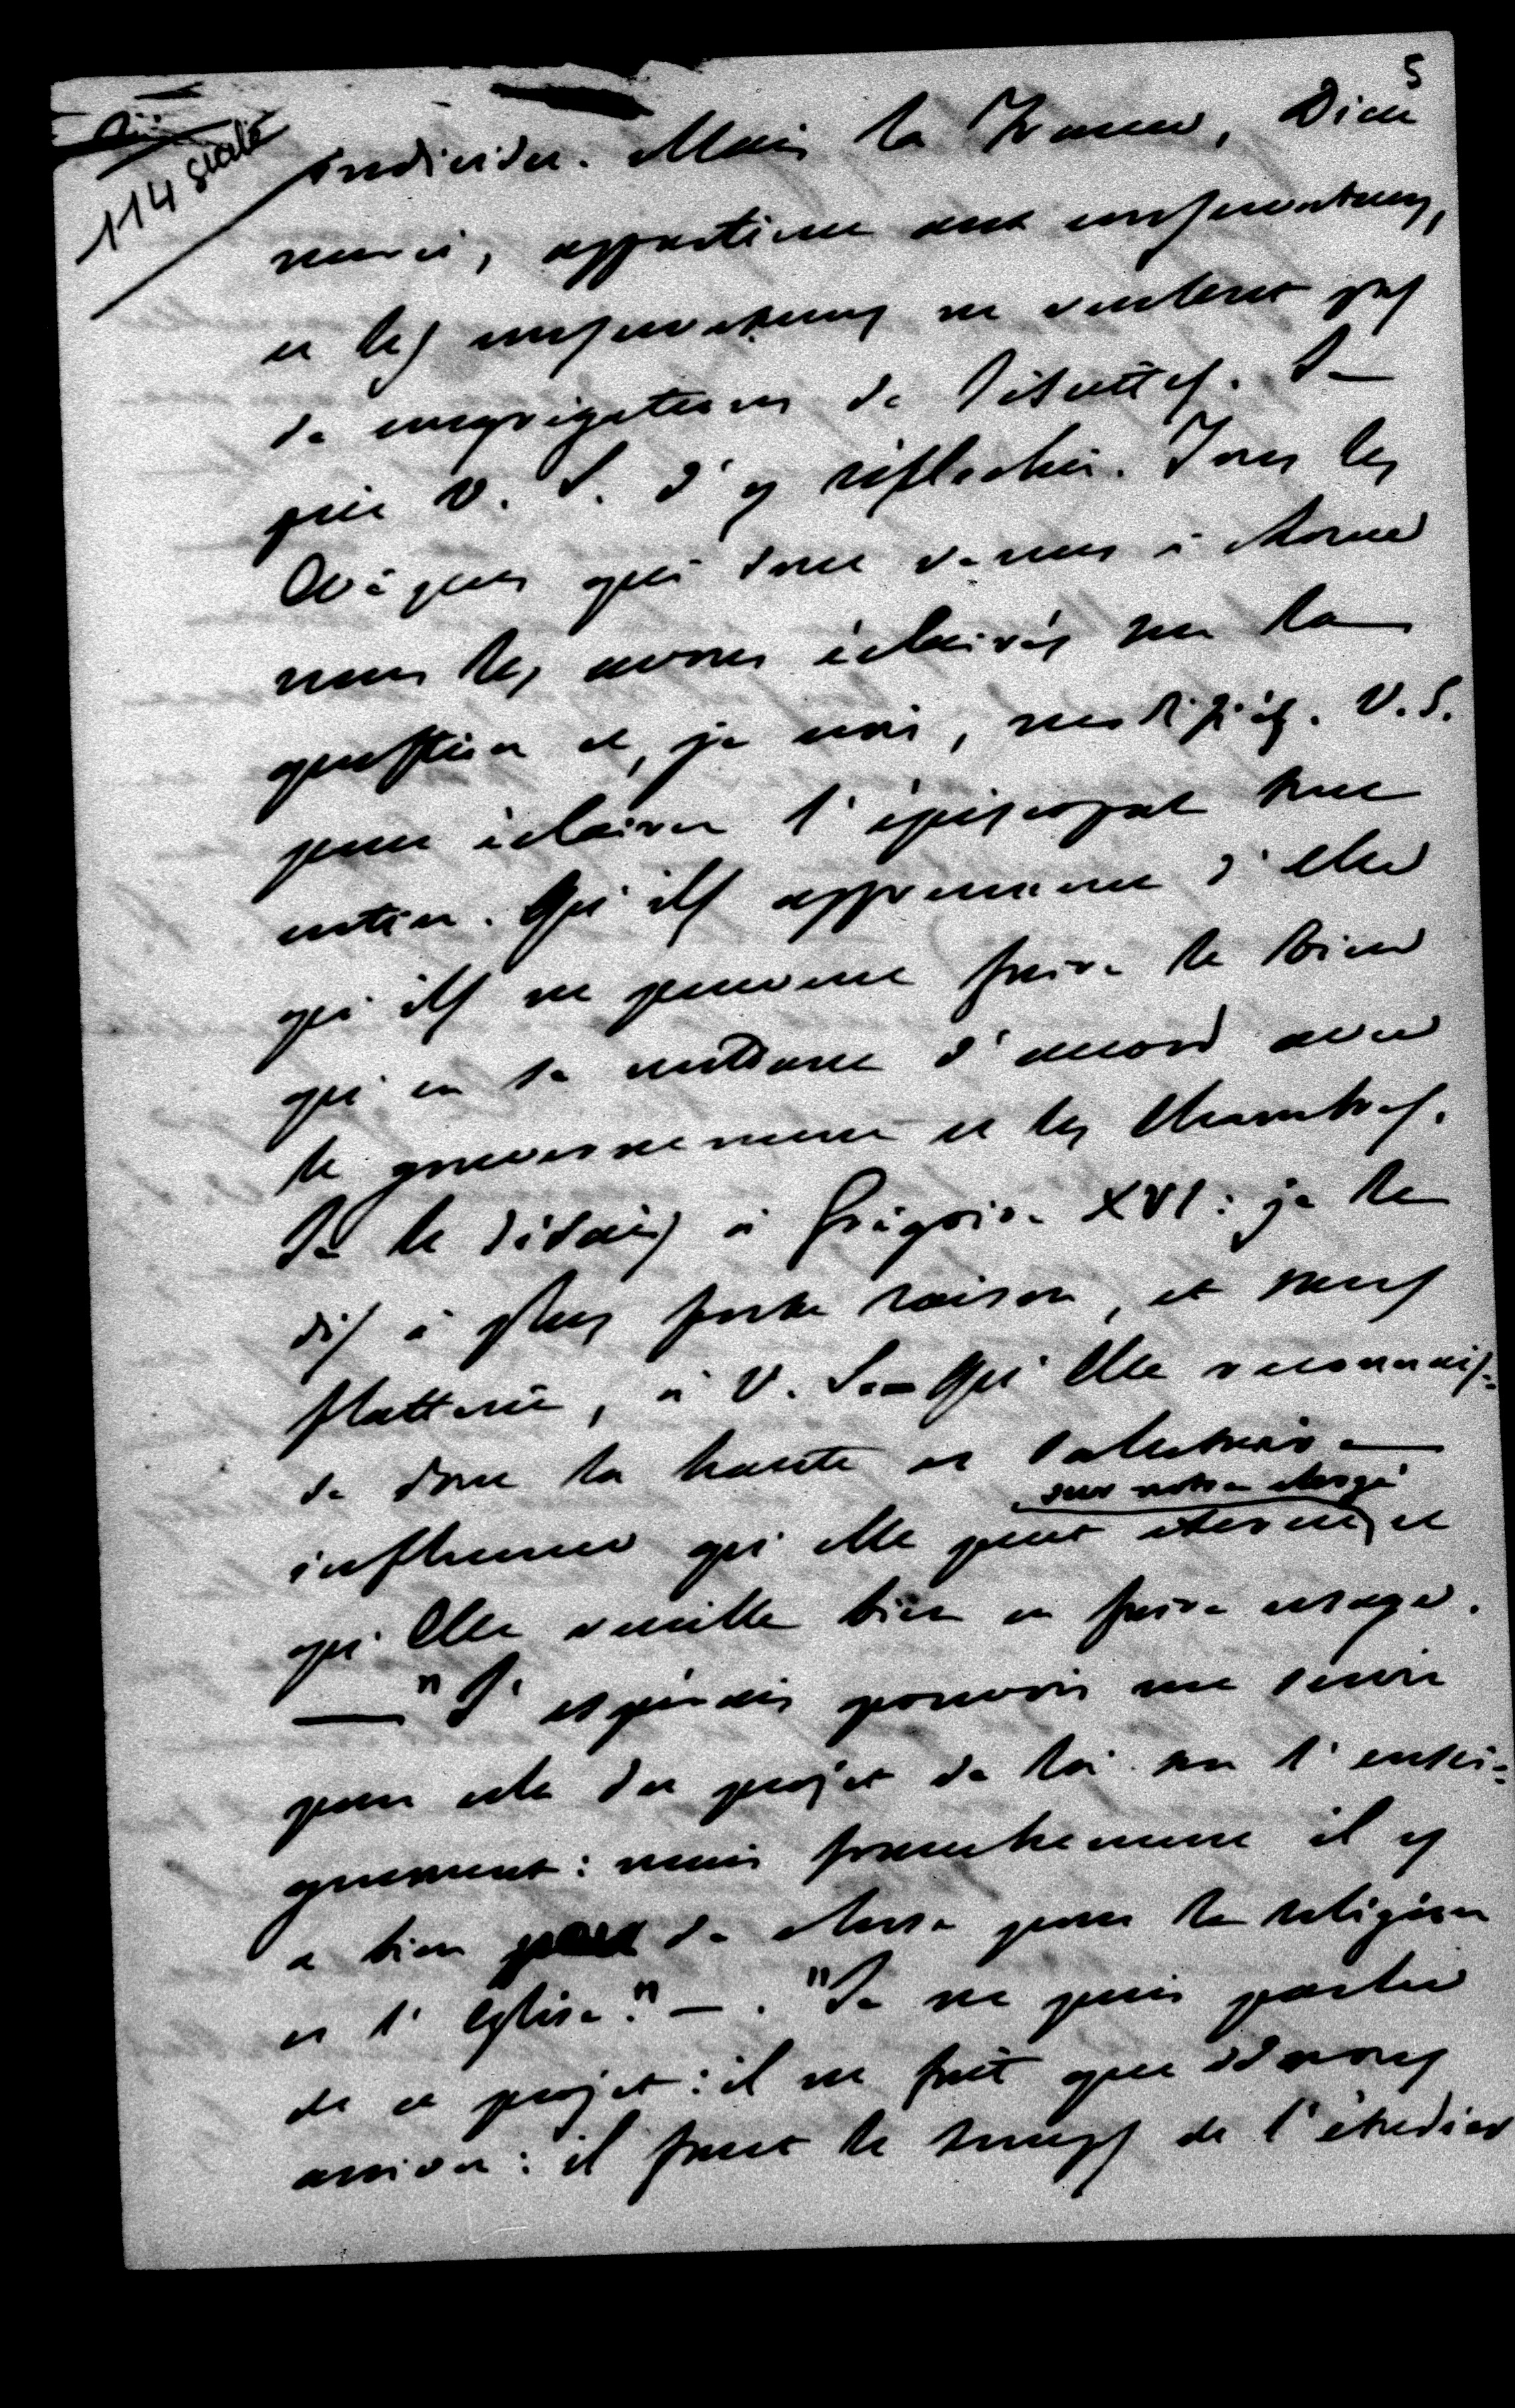 5
114
individu. Mais la France, Dieu
merci, appartient aux conservateurs,
et les conservateurs ne veulent pas
de congrégations de Jésuites. Je
prie V. S. d'y réfléchir. Tous les
Evêques qui sont venus à Rome
nous les avons éclairés sur la
question et, je crois, modifiés. V. S.
peut éclairer l'épiscopat tout
entier. Qu'ils apprennent d'elle
qu'ils ne peuvent faire le bien
qu'en se mettant d'accord avec
le gouvernement et les Chambres.
Je le disais à Grégoire XVI: je le
dis à plus forte raison, et sans
flatterie, à V. S. – Qu'Elle reconnais=
se donc la haute et salutaire
sur notre clergé
influence qu'elle peut exercer, et
qu'Elle veuille bien en faire usage.
— "J'espérais pouvoir me servir
pour cela du projet de loi sur l'ensei=
gnement: mais franchement il y
a bien peu de chose pour la religion
et l'Eglise." — . "Je ne puis parler
de ce projet: il ne fait que
arriver: il faut le temps de l'étudier